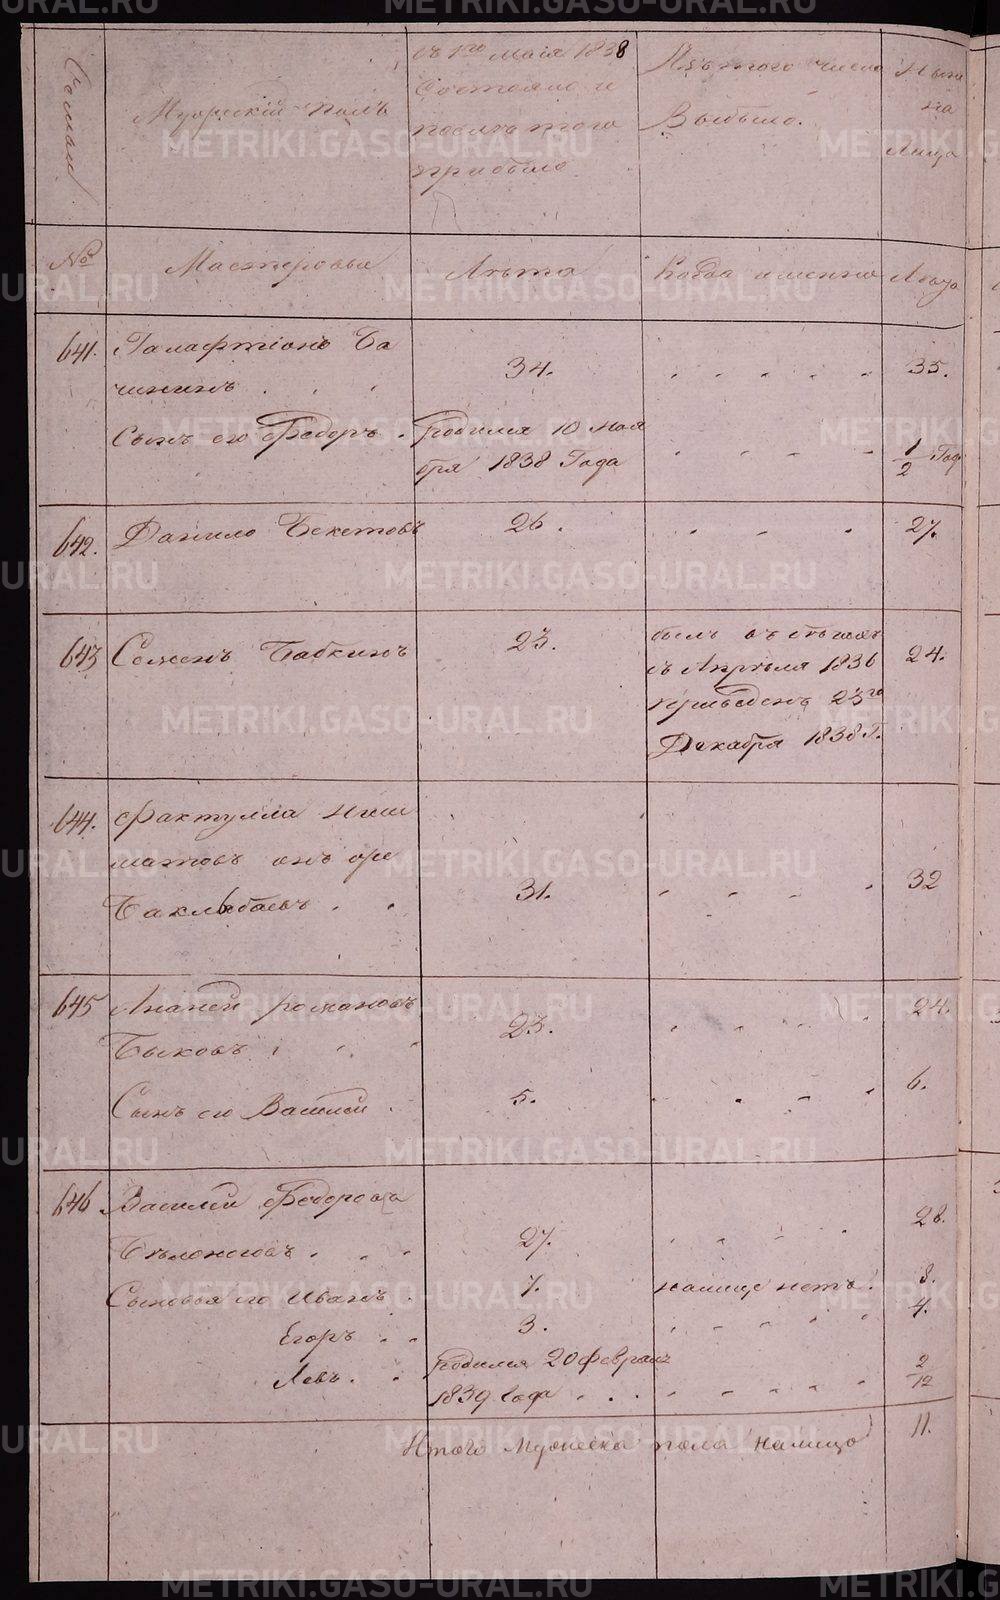 Семьи
Мужескій полъ
съ 1го маія 1838
Состояло и
послѣ того
прибыло
Изъ того числа
Выбыло.
Нынѣ
на
Лицо
№
Мастеровыя
Лѣта
Когда именно
Лѣта
641. Галафтіонъ Ба
чининъ . . 34. 35.
Сынъ его Федоръ . родился 10 Ноя
бря 1838 Года 1/2 Год
642. Данило Бекетовъ 26. 27.
643 Семенъ Бабкинъ 23. 24.
былъ въ бѣгахъ
съ Апрѣля 1836
приведенъ 23го
Декабря 1838 Г.
644. Фактулла Ниш
матовъ онъ же
Баклыбаевъ . . 31. 32
645 Ананей романовъ
Быковъ 23. 24.
Сынъ его Василей . 5. 6.
646 Василей Федоровъ
Бѣлоносовъ . . . 27. 28.
Сыновья его Иванъ . 7. налице нетъ. 8.
Егоръ . . 3. 4.
Левъ . . родился 20 февраля
1839 Года . . . 2/12
Итого Мужеска пола налицо 11.
METRIKI.GASO-URAL.RU